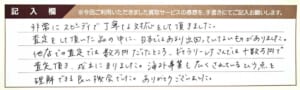 記入欄
※今回ご利用いただきました買取サービスの感想を、手書きにてご記入お願いします。
非常にスピーディで丁寧な対応をして頂きました。
査定をして頂いた品の中に、日本にはあまり出回っていないものがありました。
他店での査定では数万円だったという、で十数万円で
査定頂き、大変に驚きました。海外事業も広くされているという点を
理解できる良い機会でした。ありがとうございました。